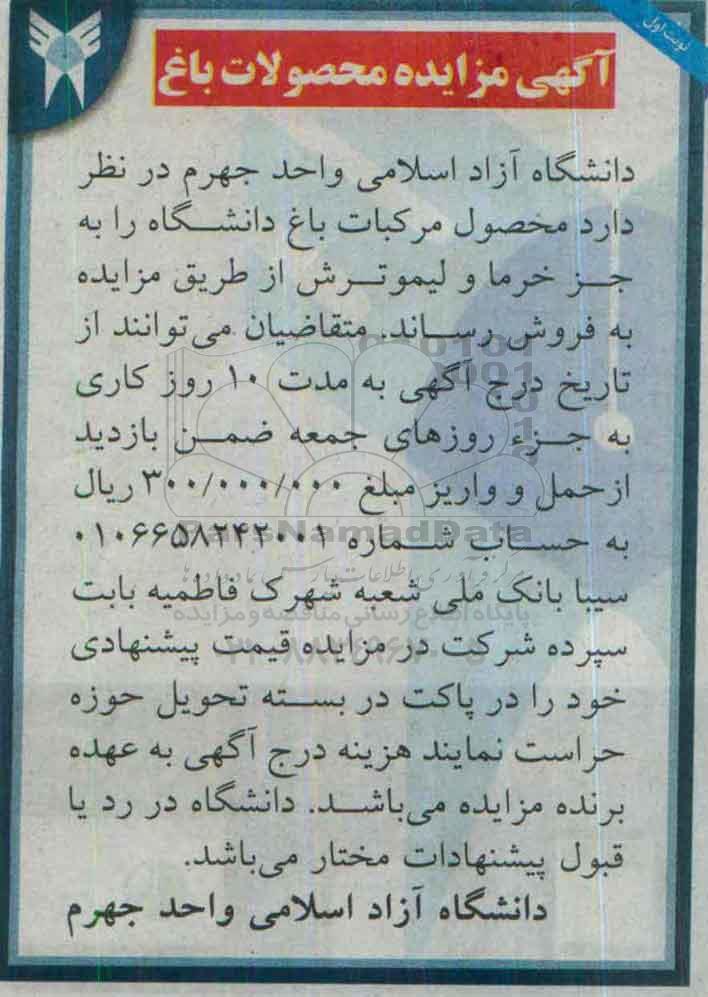 نوبت اول
آگهی مزایده محصولات باغ
دانشگاه آزاد اسلامی واحد جهرم در نظر
دارد محصول مرکبات باغ دانشگاه را به
جز خرما و لیموترش از طریق مزایده
به فروش رساند. متقاضیان می‌توانند از
تاریخ درج آگهی به مدت ۱۰ روز کاری
به جزء روزهای جمعه ضمن بازدید
ازحمل و واریز مبلغ ۳۰۰/۰۰۰/۰۰۰ ریال
به حساب شماره ۰۱۰۶۶۵۸۲۴۲۰۰۱
ParsNamadData
سیبا بانک ملی شعبه شهرک فاطمیه بابت
پایگاه اطلاع رسانی مناقصه و مزایده
سپرده شرکت در مزایده قیمت پیشنهادی
خود را در پاکت در بسته تحویل حوزه
حراست نمایند هزینه درج آگهی به عهده
برنده مزایده می‌باشد. دانشگاه در رد یا
قبول پیشنهادات مختار می‌باشد.
دانشگاه آزاد اسلامی واحد جهرم